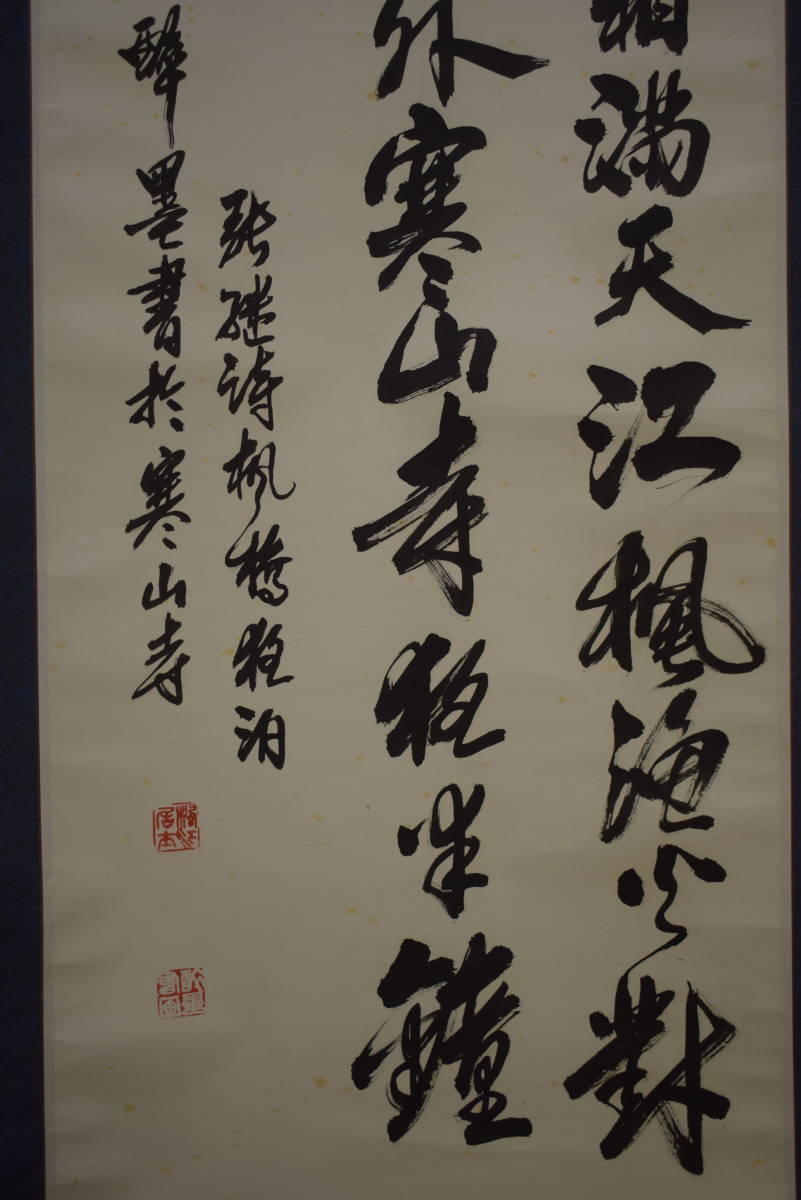 霜满天江楓漁火對
外寒山寺夜半鐘
张继诗楓橋夜泊
醉墨書於寒山寺